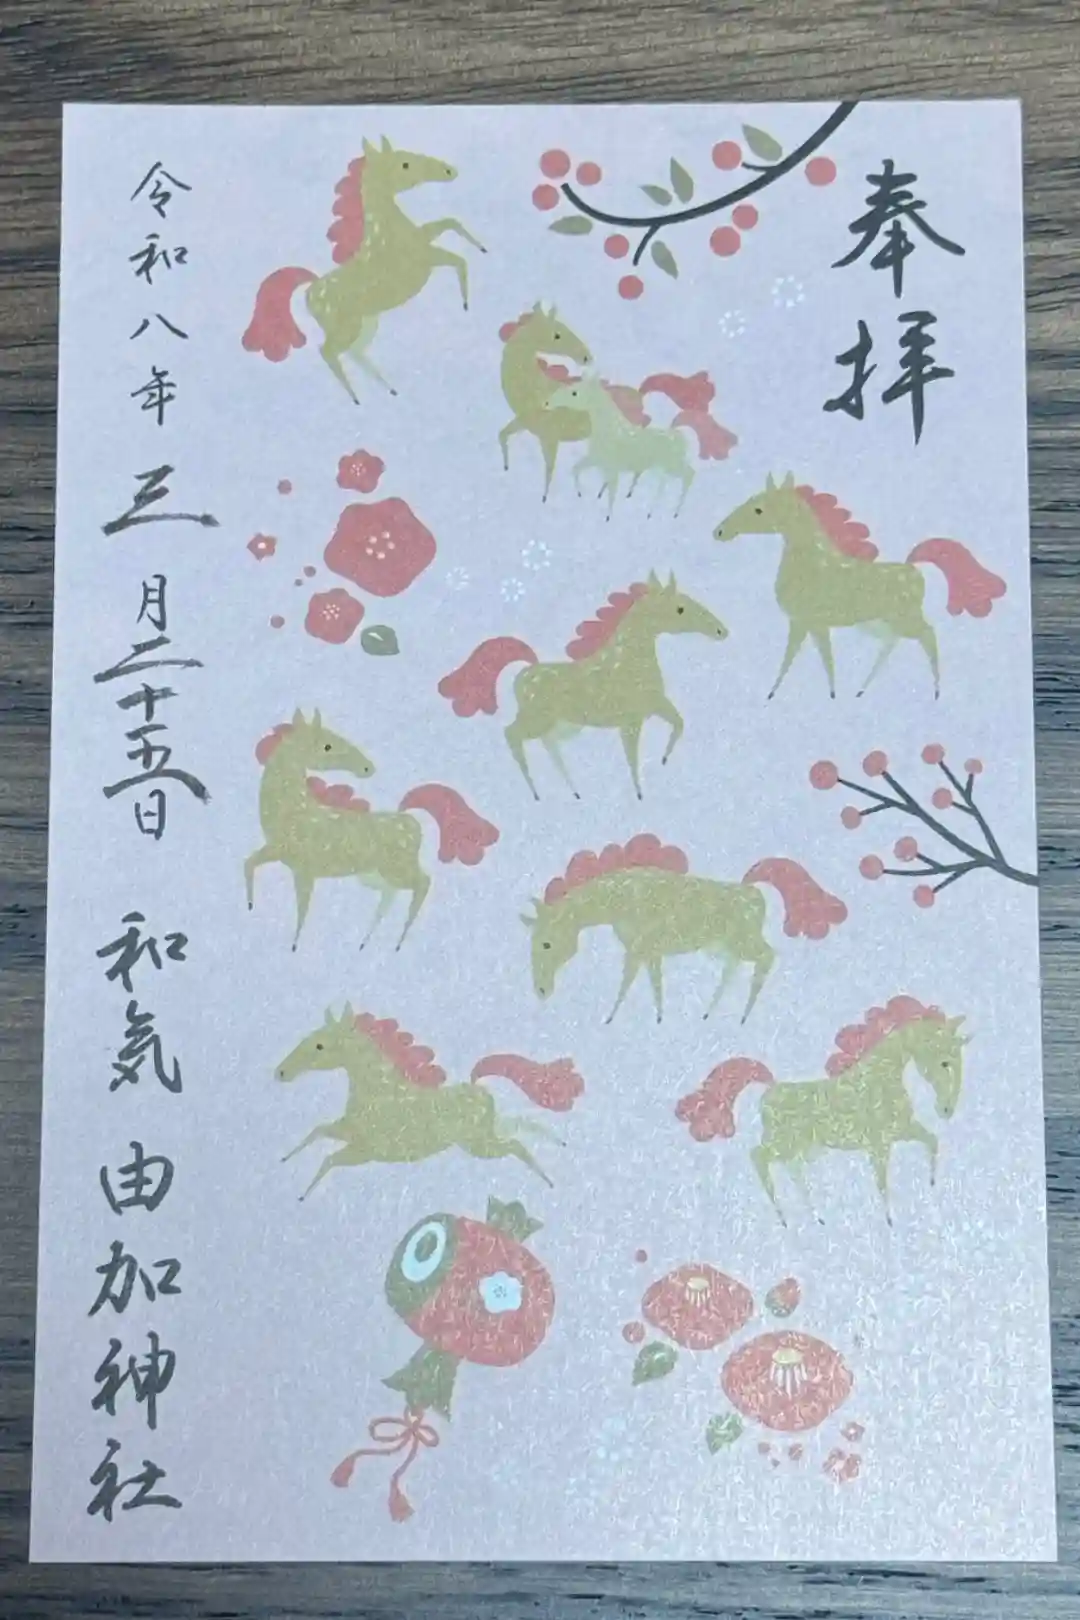 奉拝
令和八年三月二十五日 和気 由加神社